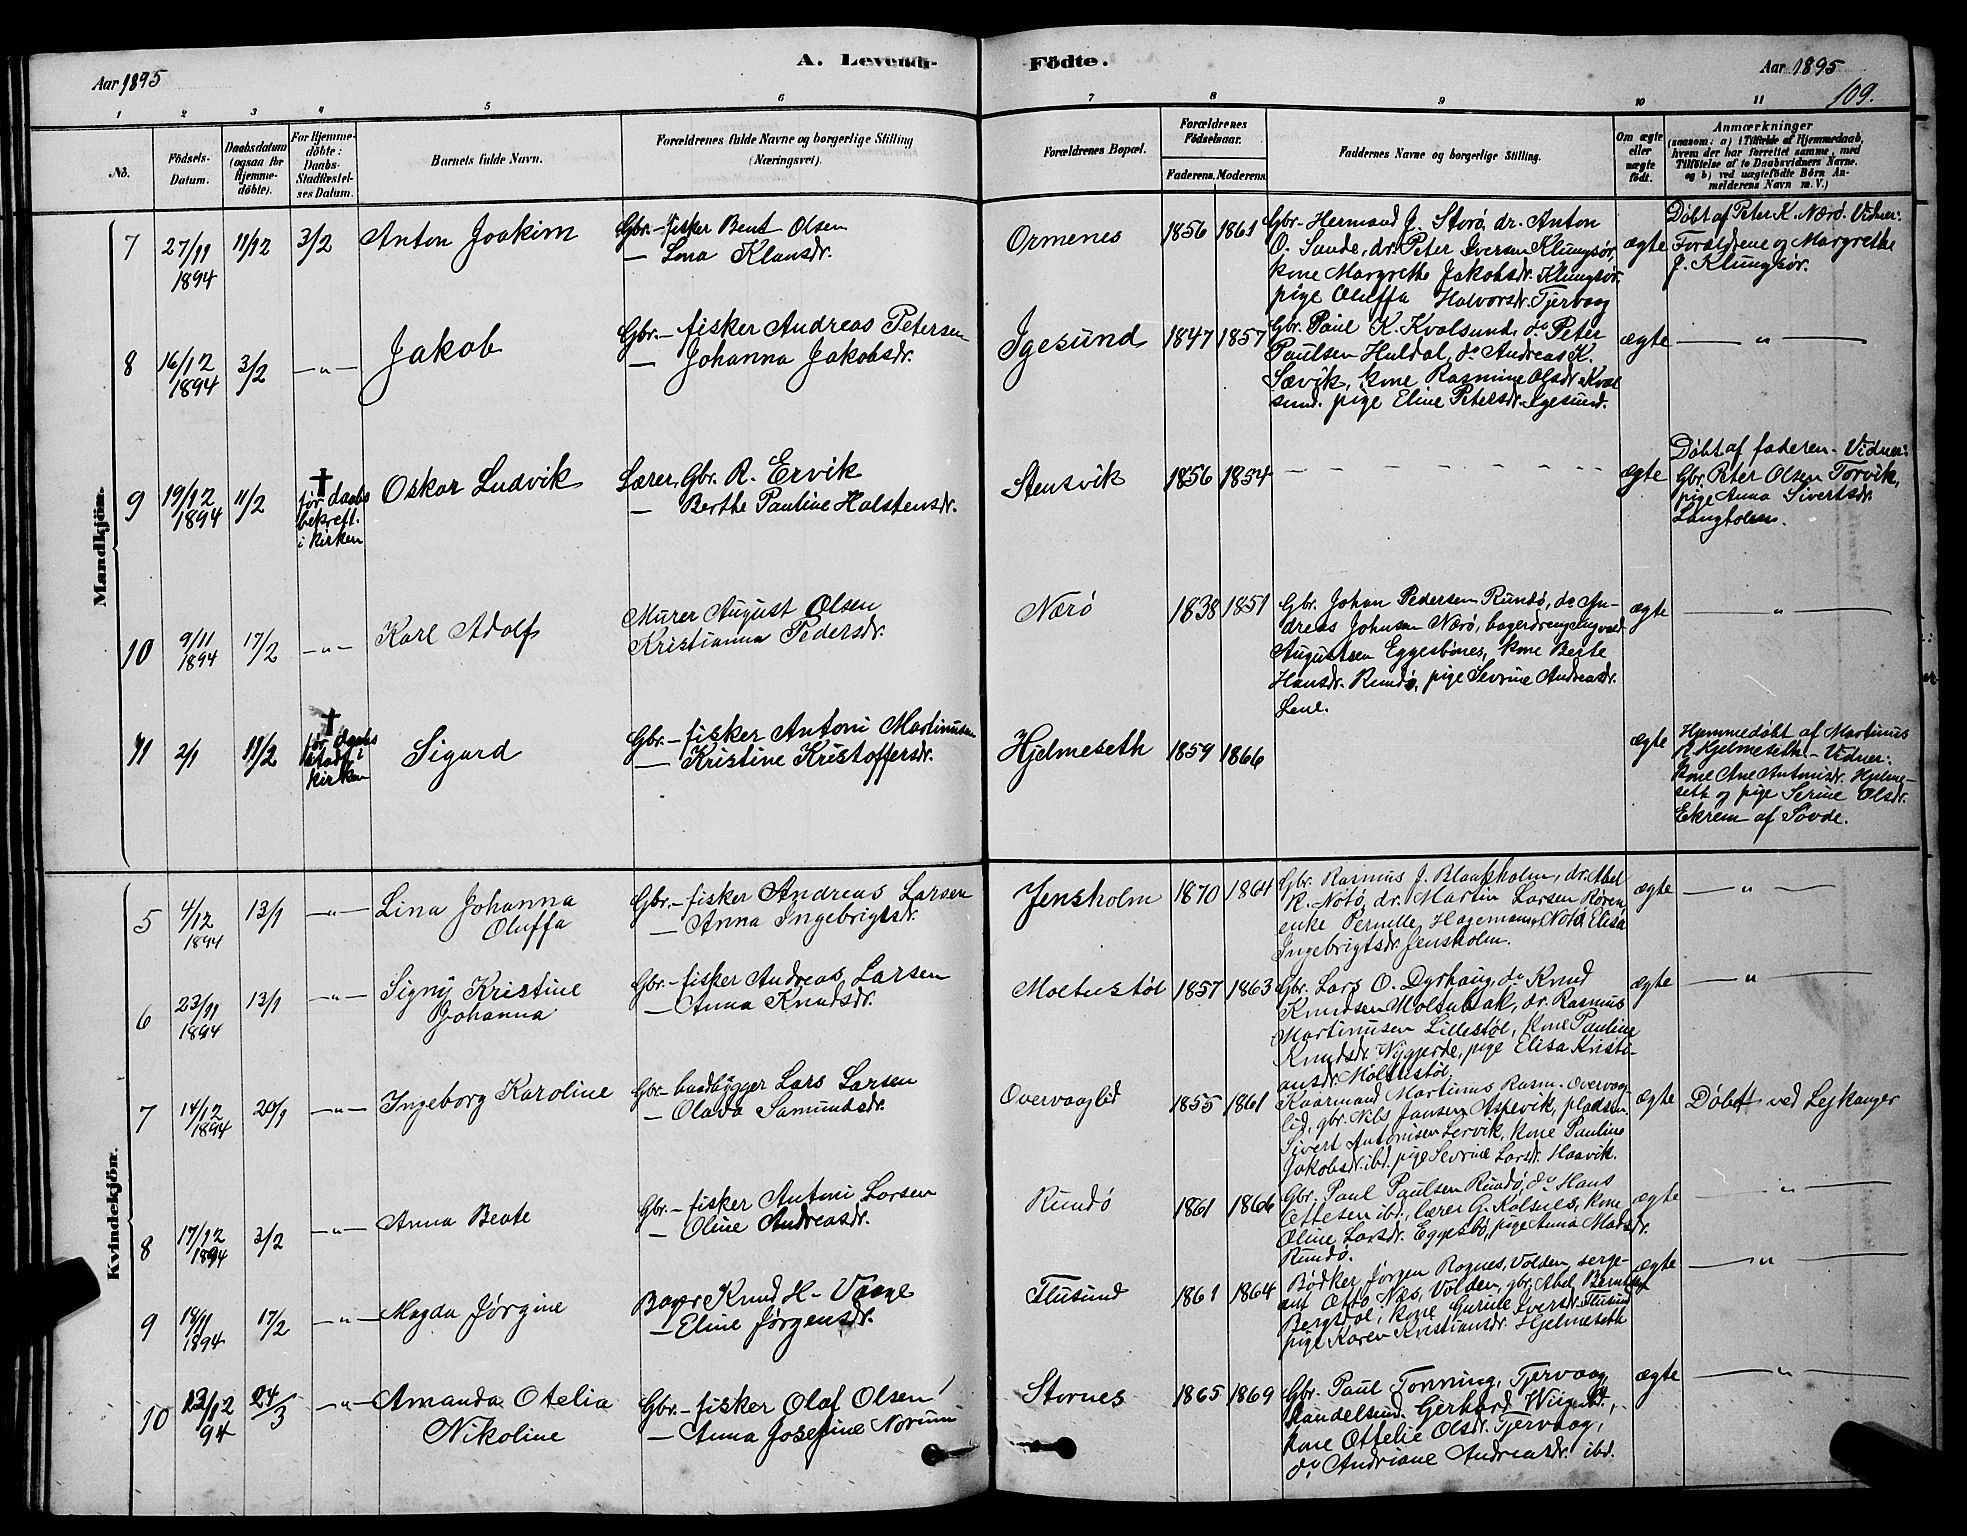 Aar 1895
A. Levende Födte.
Aar 1895
109.
1 2 3 4 5 6 7 8 9 10 11
No.
Födsels-
Datum.
Daabsdatum
(ogsaa for
Hjemme-
döbte).
For Hjemme-
döbte:
Daabs-
Stadfæstel-
ses Datum.
Barnets fulde Navn.
Forældrenes fulde Navne og borgerlige Stilling
(Næringsvei).
Forældrenes Bopæl.
Forældrenes
Födselsaar.
Faderens. Moderens.
Faddernes Navne og borgerlige Stilling.
Om ægte
eller
uægte
födt.
Anmærkninger
(saasom: a) i Tilfælde af Hjemmedaab,
hvem der har forrettet samme, med
Tilföielse af to Daabsvidners Navne.
og b) ved uægtefödte Börn An-
melderens Navn m. V.)
Mandkjön.
7 27/11 1894 11/12 3/2 Anton Joakim
Gbr.- fisker Bent Olsen
— Lina Klausdr.
Ormenes 1856 1861
Gbr. Hermand J. Storö, dr. Anton
O. Sande, dr. Peter Iversen Klungsör,
kone Margrethe Jakobsdr. Klungsör.
pige Oluffa Halvorsdr. Tjervaag
ægte
Döbt af Peter K. Nærö. Vidner:
Forældrene og Margrethe
J. Klungsör.
8 16/12 1894 3/2 —„— Jakob
Gbr.- fisker Andreas Petersen
— Johanna Jakobsdr.
Igesund 1847 1857
Gbr. Paul K. Kvalsund, do Peter
Paulsen Huldal, do Andreas K.
Sævik, kone Rasmine Olsdr. Kval
sund. pige Eline Petersdr. Igesund.
ægte — „ —
9 19/12 1894 11/2
† för daabs
bekreft.
i kirken
Oskar Ludvik
Lærer, Gbr. R. Ervik
— Berthe Pauline Halstensdr.
Stensvik 1856 1854 — — — — — — — — ægte
Döbt af faderen. Vidner:
Gbr. Peter Olsen Torvik,
pige Anna Sivertsdr.
Langholm.
10 9/11 1894 17/2 —„— Karl Adolf
Murer August Olsen
Kristianna Pedersdr.
Nærö 1838 1851
Gbr. Johan Pedersen Rundö, do An-
dreas Johnsen Nærö, bagerdreng Ingvald
Augustsen Eggesbönes, kone Berte
Hansdr. Rundö, pige Sevrine Andreasdr.
Lene.
ægte — „ —
11 2/1 11/2
† för daabs
stadf. i
kirken
Sigurd
Gbr.- fisker Antoni Martinusen
— Kristine Kristoffersdr.
Hjelmeseth 1859 1866 ægte
Hjemmedöbt af Martinus
Hjelmeseth. Vidner:
kone Ane Antonisdr. Hjelme-
seth og pige Serine Olsdr.
Ekrem af Sövde.
Kvindekjön.
5 4/12 1894 13/1 —„— Lina Johanna
Oluffa
Gbr.- fisker Andreas Larsen
— Anna Ingebrigtsdr.
Jensholm 1870 1864
Gbr. Rasmus J. Blaaksholm, dr. Abel
K. Notö, dr. Martin Larsen Rören,
enke Pernille Hagemann, Elisa
Ingebrigtsdr. Jensholm.
ægte — „ —
6 23/11 1894 13/1 —„— Signy Kristine
Johanna
Gbr.- fisker Andreas Larsen
— Anna Knudsdr.
Moltustöl 1857 1863
Gbr. Lars O. Dyrhaug, do Knud
Knudsen Moltubak, dr. Rasmus
Martinusen Lillestöl, kone Pauline
Knudsdr. Nygjerde, pige Elisa Kristi-
ansdr. Moltustöl.
ægte — „ —
7 14/12 1894 20/1 —„— Ingeborg Karoline
Gbr.- baadbygger Lars Larsen
— Olava Samundsdr.
Overvaaglid 1855 1861
Kaarmand Martinus Rasm. Overvaag-
lid, gbr. Nils Jansen Aspevik, pladsm.
Sivert Antonisen Lervik, kone Pauline
Jakobsdr. ibd. pige Sevrine Larsdr. Haavik.
ægte Döbt ved Lejkanger
8 17/12 1894 3/2 —„— Anna Beate
Gbr.- fisker Antoni Larsen
— Oline Andreasdr.
Rundö 1861 1866
Gbr. Paul Paulsen Rundö, do Hans
Ottesen ibd., lærer G. Kolsnes, kone
Oline Larsdr. Eggesbö, pige Anna Madsdr.
Rundö.
ægte — „ —
9 18/11 1894 17/2 —„— Magda Jörgine
Bager Knud H. Vaage
— Eline Jörgensdr.
Flusund 1861 1864
Bödker Jörgen Rognes, Volden, serge-
ant Otto Næs, Volden, gbr. Abel Berntsen
Bergsdal, kone Gurine Iversdr. Flusund
pige Karen Kristiansdr. Hjelmeseth
ægte — „ —
10 13/12 94 24/3 —„— Amanda Otelia
Nikoline
Gbr.- fisker Olaf Olsen
— Anna Josefine Norum
Stornes 1865 1869
Gbr. Paul Tonning, Tjervaag,
Handelsmd. Gerhard Wiig ibd.,
kone Ottelie Olsdr. Tjervaag,
do Andriane Andreasdr. ibd.
ægte — „ —